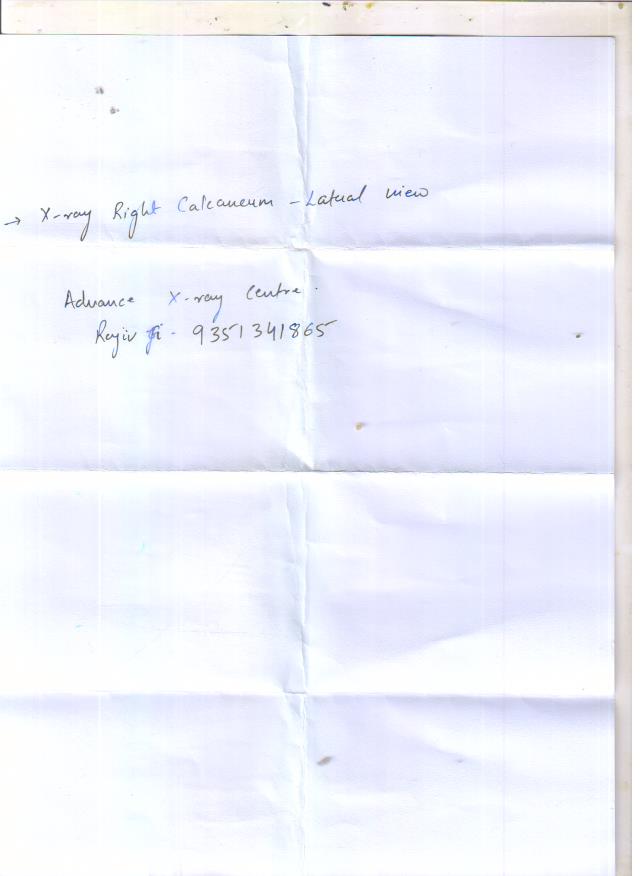 → X-ray Right Calcaneum - Lateral view
Advance X-ray Centre.
Rajiv ji - 9351341865